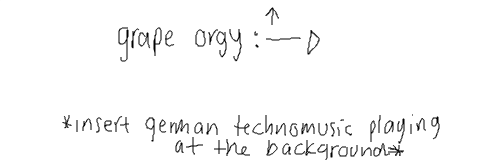 grape orgy :
*insert german technomusic playing
at the background*